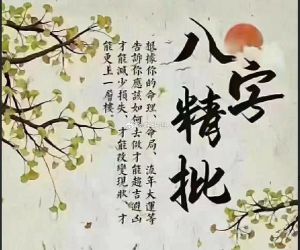 八字精批
根據你的命理、命局、流年大運等
告訴你應該如何去做才能趨吉避凶
才能減少損失、才能改變現狀、才
能更上一層樓。